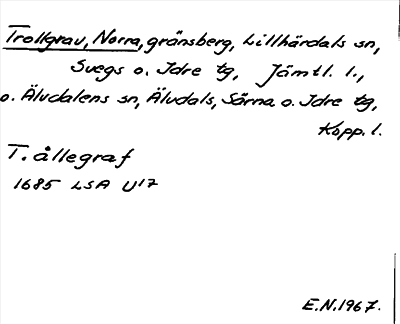 Trollgrav, Norra, gränsberg, Lillhärdals sn,
Svegs o. Idre tg, Jämtl. l.,
o. Älvdalens sn, Älvdals, Särna o. Idre tg,
Kopp. l.
T. ållegraf
1685 LSA U17
E.N. 1967.